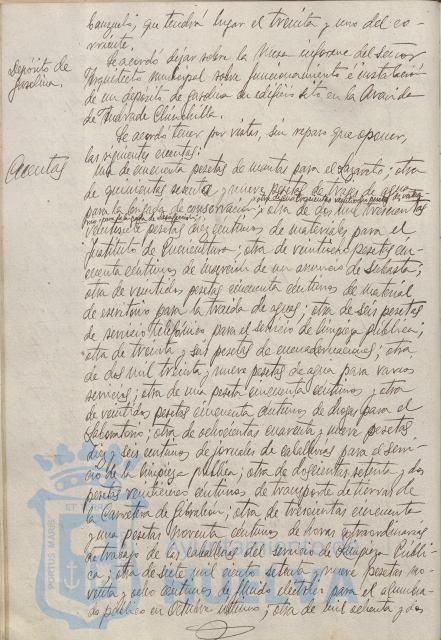 banzuela, que tendrá lugar el treinta y uno del co-
rriente.
Depósito de
gasolina.
Se acordó dejar sobre la Mesa informe del señor
Arquitecto municipal sobre funcionamiento é instalació
de un depósito de gasolina en edificio sito en la Avenida
de Andrade Chinchilla.
Cuentas
Se acordó tener por vistas, sin reparo que oponer,
las siguientes cuentas:
Una de cincuenta pesetas de mantas para el Lazareto; otra
de quinientas sesenta y nueve pesetas de trajes de agua
para la brigada de conservación; otra de dos mil trescientas
veintisiete pesetas diez céntimos de materiales para el
Instituto de Puericultura; otra de veintinueve pesetas cin-
cuenta céntimos de inserción de un anuncio de subasta;
otra de veintidós pesetas cincuenta céntimos de material
de escritorio para la traída de aguas; otra de seis pesetas
de servicio telefónico para el servicio de limpieza pública;
otra de treinta y seis pesetas de encuadernaciones; otra
de dos mil treinta y nueve pesetas de agua para varios
servicios; otra de una peseta cincuenta céntimos y otra
de veintidós pesetas cincuenta céntimos de drogas para el
Laboratorio; otra de ochocientas cuarenta y nueve pesetas
diez y seis céntimos de jornales de caballerías para el servi-
cio de la limpieza pública; otra de doscientas setenta y dos
pesetas veintinueve céntimos de transporte de tierras de
la Carretera de; otra de trescientas cincuenta
y una pesetas noventa céntimos de horas extraordinarias
de trabajo de las caballerías del servicio de Limpieza Públi-
ca; otra de siete mil ciento setenta y nueve pesetas no-
venta y ocho céntimos de fluido eléctrico para el alumbra-
do público en Octubre último; otra de mil ochenta y dos
PORTUS MARIS